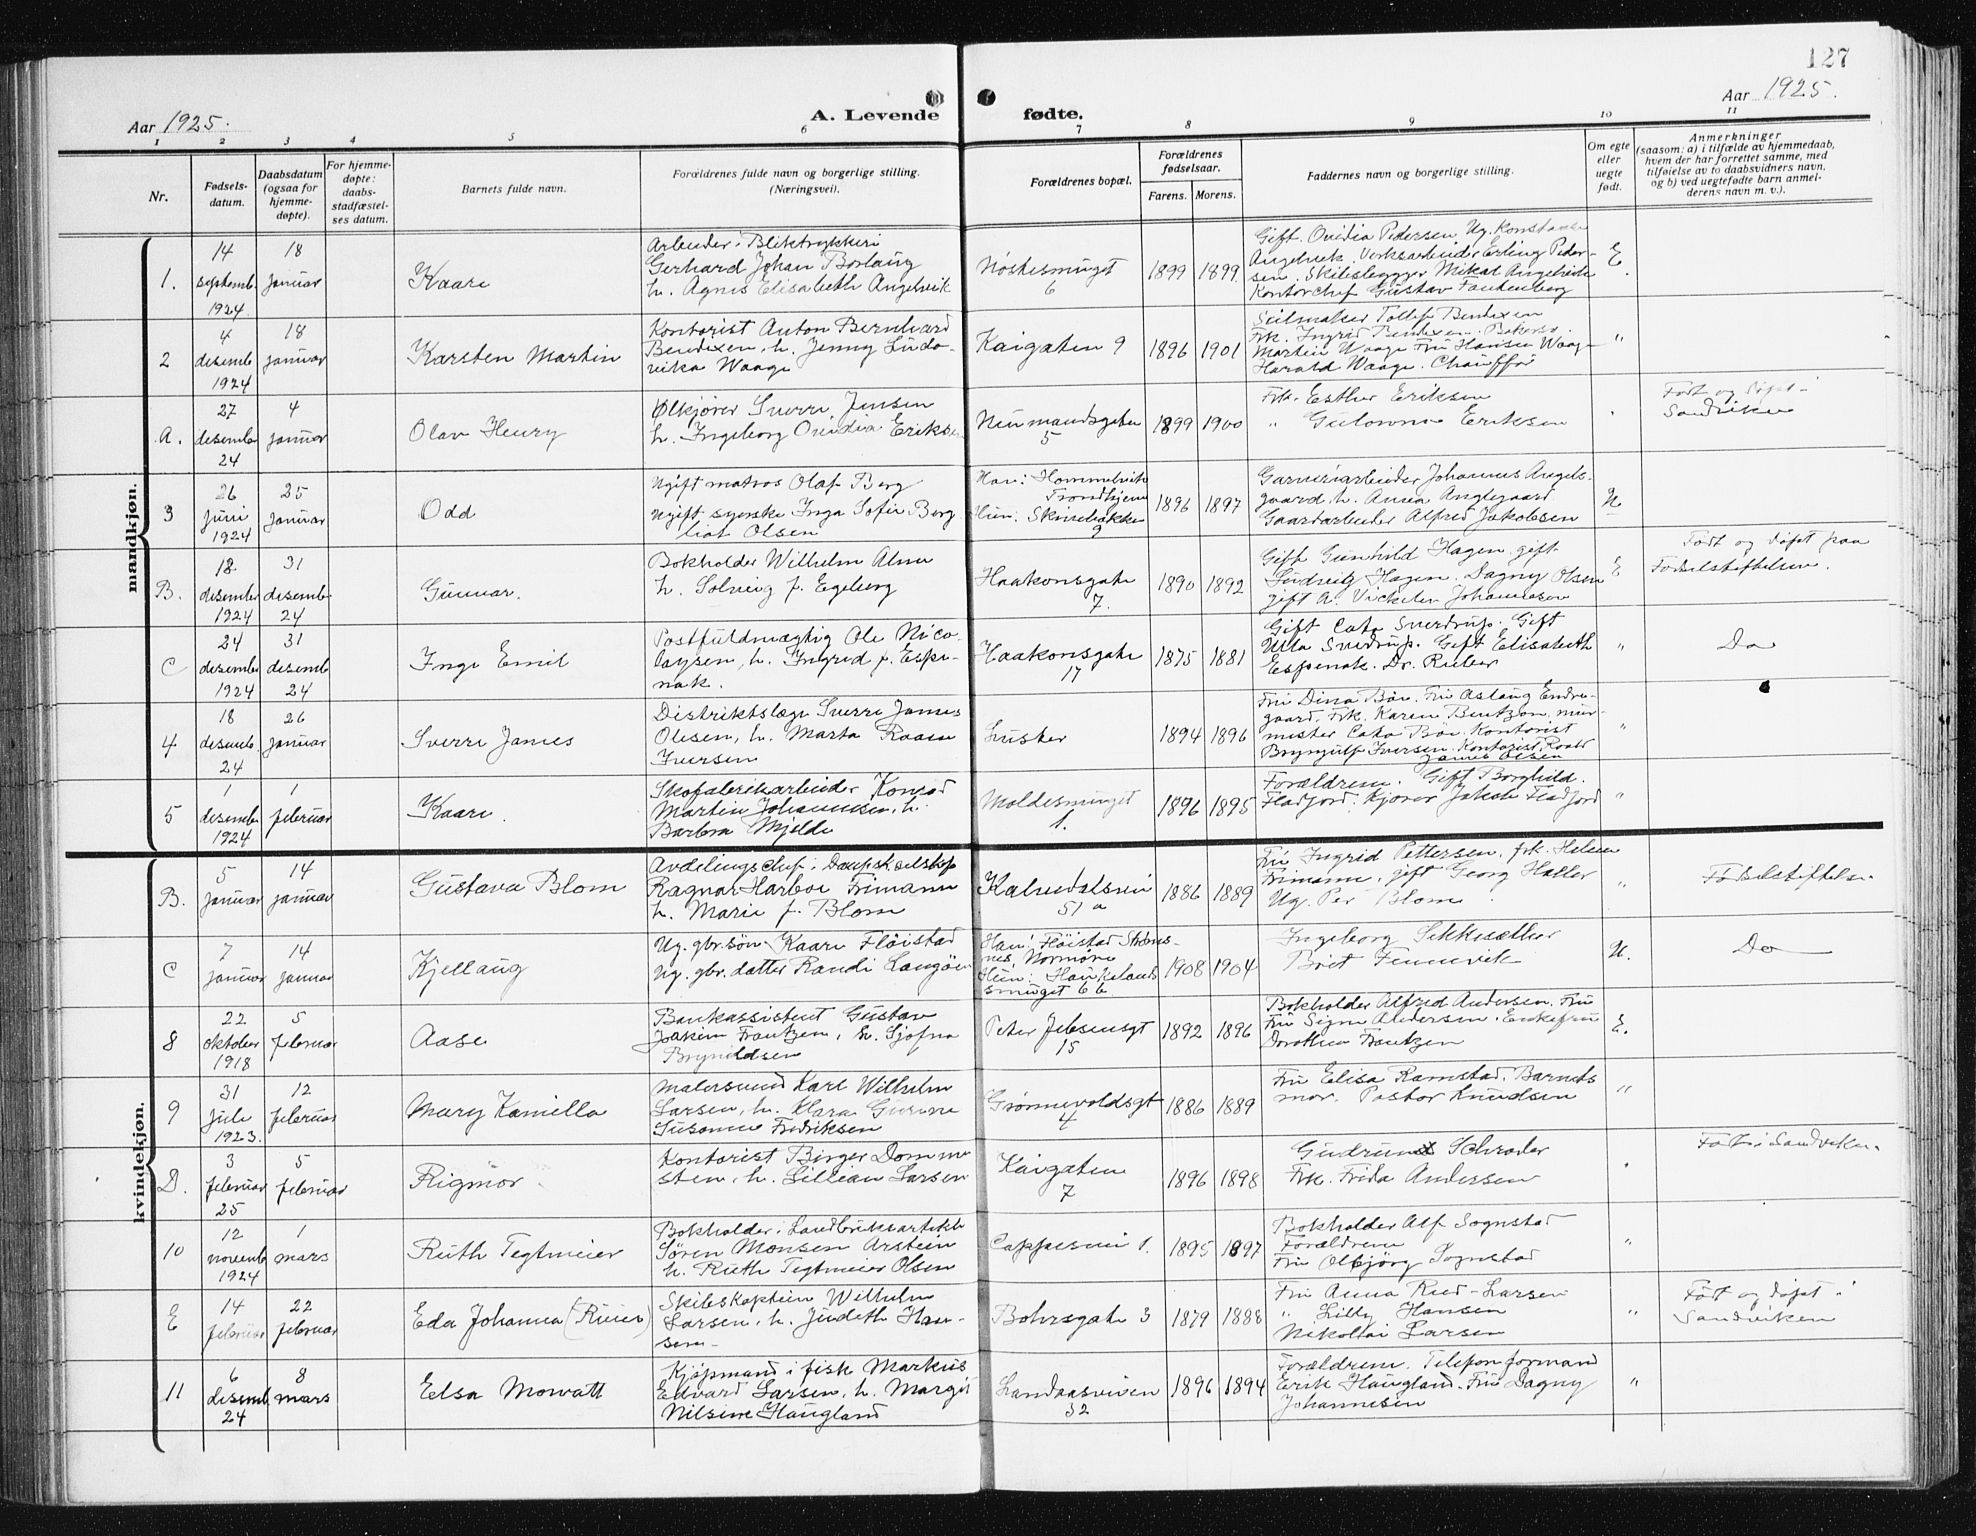 127
Aar 1925.
A. Levende fødte.
Aar 1925.
1 2 3 4 5 6 7 8 9 10 11
Nr.
Fødsels-
datum.
Daabsdatum
(ogsaa for
hjemme-
døpte).
For hjemme-
døpte:
daabs-
stadfæstel-
ses datum.
Barnets fulde navn.
Forældrenes fulde navn og borgerlige stilling.
(Næringsvei).
Forældrenes bopæl.
Forældrenes
fødselsaar.
Farens. Morens.
Faddernes navn og borgerlige stilling.
Om egte
eller
uegte
født.
Anmerkninger
(saasom: a) i tilfælde av hjemmedaab,
hvem der har forrettet samme, med
tilføielse av to daabsvidners navn,
og b) ved uegtefødte barn anmel-
derens navn m. v.).
mandkjøn.
1.
14
septemb.
1924
18
januar
Kaare
Arbeider i Bliktrykkeri
Gerhard Johan Borlaug
h. Agnes Elisabeth Angelvik
Nøstesmuget
6
1899 1899.
Gift Ovidia Pedersen Ug. Konstanse
Angelvik. Verksarbeider Erling Peder-
sen. Skibsbygger Mikal Angelvik
Kontorchef Gustav Fankenberg
E.
2
4
desemb
1924
18
januar
Karsten Martin
Kontorist Anton Bernhard
Bendixen, h. Jenny Ludo-
vika Waage
Kaigaten 9
1896 1901
Seilmaker Tollef Bendixen
Frk. Ingrid Bendixen. Bakersv.
Martin Waage Fru Hansen Waage
Harald Waage. Chauffør
"
A.
27
desember
24
4
januar
Olav Henry
Ølkjører Sverre Jensen
h. Ingeborg Ovidia Eriksen
Neumandsgaten
5
1899 1900
Frk. Esther Eriksen
" Gulowna Eriksen
"
Født og døpt i
Sandviken
3
26
juni
1924
25
januar
Odd
Ugift matros Olaf Berg
Ugift syerske Inga Sofie Berg
liot Olsen
Han: Hommelvik
Trondhjem
Hun: Skivebakken
9
1896 1897
Garveriarbeider Johannes Angels-
gaard h. Anna Anglegaard
Gaardarbeider Alfred Jakobsen
U
B.
18
desember
1924
31
desember
24
Gunnar.
Bokholder Wilhelm Alme
h. Solveig f. Egeberg
Haakonsgate
7.
1890 1892
Gift Gunhild Hagen gift
Ludvig Hagen. Dagny Olsen
gift A. Johannesen
E
Født og døpt paa
Fødselstiftelsen.
C
24
desember
1924
31
desemb
24
Inge Emil
Postfuldmægtig Ole Nico-
laysen, h. Ingrid f. Espe-
nak.
Haakonsgate
17
1875 1881
Gift Cato Sverdrup. Gift
Ulla Sverdrup. Gift Elisabeth
Espenak. Dr. Rieber
"
Do
4
18
desemb
24
26
januar
Sverre James
Distriktslæge Sverre James
Olesen, h. Marta Roann
Iversen
Luster
1894 1896
Fru Dina Bøe. Fru Aslaug Endre-
gaard. Frk. Karen Bentzon. mur-
mester Cato Bøe. Kontorist
Brynjulf Iversen. Kontorist Roald
James Olsen
"
5
1
desember
1924
1
februar
Kaare.
Skofabrikarbeider Konrad
Martin Johannesen, h.
Barbra Mjelde
Moldesmuget
1.
1896 1895
Forældrene. Gift Borghild
Fladfjord. Kjører Jakob Fladfjord
"
kvindekjøn.
B.
5
januar
14
januar
Gustava Blom
Avdelingschef i Dampsk.selskap
Ragnar Harboe Frimann
h. Marie f. Blom
Kalvedalsvei
51 a
1886 1889
Fru Ingrid Pettersen, frk. Helene
Frimann, gift Georg Haller
Ug. Per Blom
"
Fødselstiftelsen.
C
7
januar
14
januar
Kjellaug
Ug. gbr.søn Kaare Fløistad
Ug. gbr. datter Randi Langøien
Han: Fløistad Strøms-
nes, Normøre
Hun: Haukelands
smuget 6b
1908 1904
Ingeborg Sekkesæther
Brit Fennevik
U.
Do
8
22
oktober
1918
5
februar
Aase
Bankassistent Gustav
Joakim Frantzen, h. Sjofna
Bryneldsen
Peter Jebsensgt
15
1892 1896
Bokholder Alfred Andersen. Fru
Fru Signe Andersen. Enkefru
Dorothea Frantzen
E.
9
31
juli
1923.
12
februar
Mary Kamilla
Malersvend Karl Wilhelm
Larsen, h. Klara Gurine
Susanne Fredriksen
Grønnevoldsgt
4
1886 1889
Fru Elisa Ramstad. Barnets
mor. Pastor Knudsen
"
D.
3
februar
25
5
februar
Rigmor
Kontorist Birger Domme
sten, h. Lillian Larsen
Kaigaten
7
1896 1898
Gudrun Schrøder
Frk. Frida Andersen
"
Født i Sandviken.
10
12
novemb
1924
1
mars
Ruth Tegtmeier
Bokholder i Landbruksartikler
Søren Monsen Arstein
h. Ruth Tegtmeier Olsen
Cappesvei 1.
1895 1897
Bokholder Alf Sognstad
Forældrene
Fru Olbjørg Sognstad
"
E
14
februar
22
februar
Eda Johanna (Ruies)
Skibskaptein Wilhelm
Larsen, h. Judeth Han-
sen
Bohrsgate 3
1879 1888
Fru Anna Rud-Larsen
" Lilly Hansen
Nikolai Larsen
"
Født og døpt i
Sandviken
11
6
desemb
24
8
mars
Elsa Mowatt
Kjøpmand i fisk Markus
Edvard Larsen, h. Margit
Nilsine Haugland
Landaasveien
32
1896 1894
Forældrene. Telefonformand
Erik Haugland. Fru Dagny
Johannesen
"